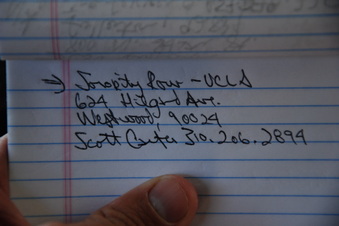 → Sorority Row - UCLA
624 Hilgard Ave.
Westwood, 90024
Scott 310.206.2894